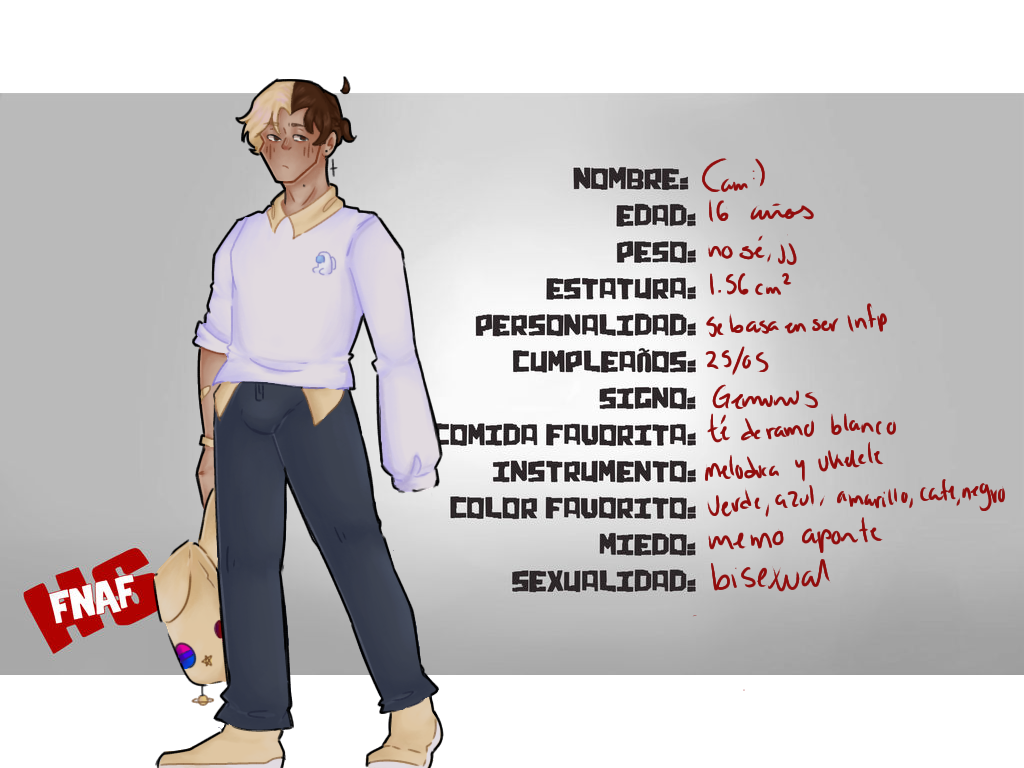 NOMBRE: Cam:)
EDAD: 16 años
PESO: no sé, jj
ESTATURA: 1.56 cm²
PERSONALIDAD: se basa en ser infp
CUMPLEAÑOS: 25/05
SIGNO: Geminis
COMIDA FAVORITA: té de ramo blanco
INSTRUMENTO: melodica y ukelele
COLOR FAVORITO: verde, azul, amarillo, cafe, negro
MIEDO: memo aponte
SEXUALIDAD: bisexual
HS
FNAF